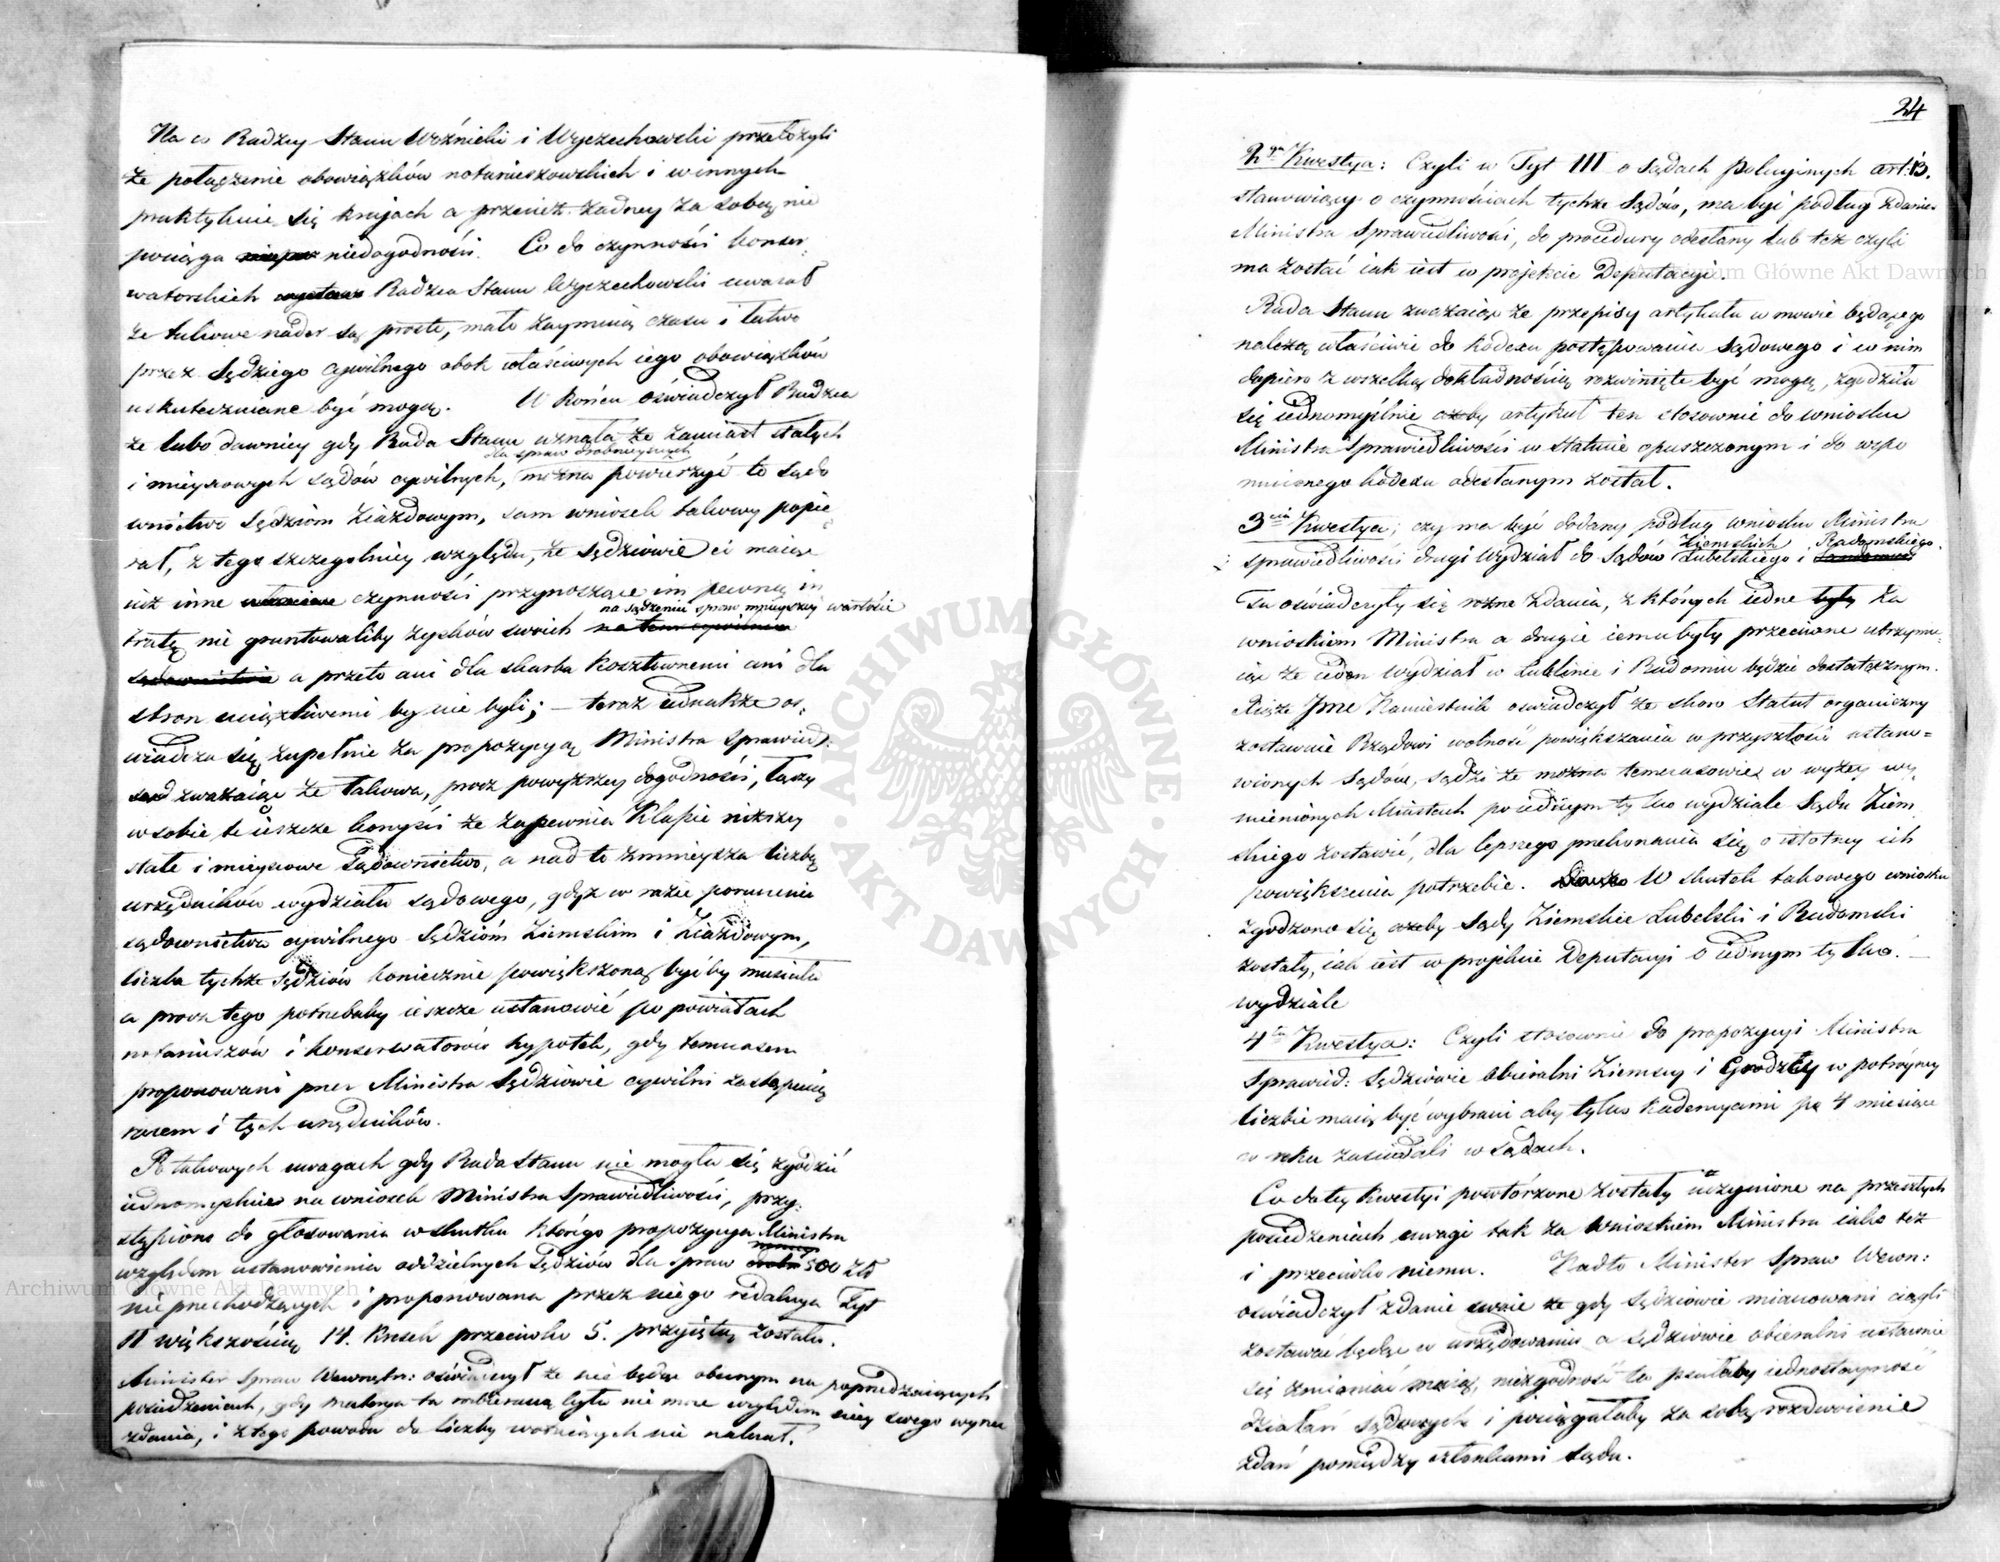 Na co Radzcy Stanu Woźnicki i Wyczechowski przełożyli
że połączenie obowiązków notariuszowskich i w innych
praktykuie się kraiach a przecież żadney za sobą nie
pociąga niedogodności. Co do czynności konser-
watorskich Radzca Stanu Wyczechowski uważał
że takowe nader są proste, mało zaymuią czasu i łatwo
przez Sędziego cywilnego obok właściwych iego obowiązków
uskuteczniane być mogą. W końcu oświadczył Radzca
że lubo dawniey gdy Rada Stanu uznała że zamiast stałych
dla spraw drobnieyszych
i mieyscowych sądów cywilnych, można powierzyć to sądo
wnictwo Sędziom Ziazdowym, sam wniosek takowy popie
rał, z tego szczególniey względu, że Sędziowie ci maiąc
iuż inne czynności przynoszące im pewną in
na sądzeniu spraw mnieyszey wartości
tratę nie gruntowaliby zysków swoich
a przeto ani dla skarbu kosztownemi ani dla
stron uciążliwemi by nie byli; – teraz iednakże os-
wiadcza się zupełnie za propozycyą Ministra Sprawied:
zważaiąc że takowa, procz powyższey dogodności, łączy
w sobie te ieszcze korzyści że zapewnia Klasie niższey
stałe i mieyscowe Sądownictwo, a nad to zmnieysza liczbę
urzędników wydziału sądowego, gdyż w razie poruczenia
sądownictwa cywilnego Sędziom Ziemskim i Ziazdowym,
liczba tychże Sędziów koniecznie powiększoną być by musiała
a procz tego potrzebaby ieszcze ustanowić po powiatach
notariuszów i konserwatorów hypotek, gdy tymczasem
proponowani przez Ministra Sędziowie cywilni zastąpią
razem i tych urzędników.
Po takowych uwagach gdy Rada Stanu nie mogła się zgodzić
iednomyślnie na wniosek Ministra Sprawiedliwości, przy-
stąpiono do głosowania w skutku którego propozycya Ministra
względem ustanowienia oddzielnych Sędziów dla spraw 500 Złł
nieprzechodzących i proponowana przez niego redakcya Tyt
II większością 14. kresek przeciwko 5. przyiętą została.
Minister Spraw Wewnętrz: oświadczył że nie będąc obecnym na poprzedzaiących
posiedzeniach, gdy materya ta rozbieraną była nie może względem niey swego wyrzec
zdania, i z tego powodu do liczby wotuiących nie należał.
24
2ga Kwestya: Czyli w Tyt III o Sądach Policyinych art: 13.
stanowiący o czynnościach tychże Sądów, ma być podług zdania
Ministra Sprawiedliwości, do procedury odesłany lub też czyli
ma zostać iak iest w projekcie Deputacyi.
Rada Stanu zważaiąc że przepisy artykułu w mowie będącego
należą właściwie do kodexu postępowania Sądowego i w nim
dopiero z wszelką dokładnością rozwinięte być mogą, zgodziła
się iednomyślnie ażeby artykuł ten stosownie do wniosku
Ministra Sprawiedliwości w statucie opuszczonym i do wspo
mnionego kodexu odesłanym został.
3cia Kwestya; czy ma być dodany podług wniosku Ministra
Ziemskich Radomskiego.
sprawiedliwości drugi wydział do Sądów Lubelskiego i
Tu oświadczyły się rożne zdania, z których iedne były za
wnioskiem Ministra a drugie iemu były przeciwne utrzymu-
iąc że ieden wydział w Lublinie i Radomiu będzie dostatecznym.
Xiąże Jmć Namiestnik oświadczył że skoro Statut organiczny
zostawuie Rządowi wolność powiększania w przyszłości ustano-
wionych Sądów, sądzi że można temczasowie w wyżey wy
mienionych Miastach po iednym tylko wydziale Sądu Ziem
skiego zostawić, dla lepszego przekonania się o istotney ich
powiększenia potrzebie. W skutek takowego wniosku
zgodzono się ażeby Sądy Ziemskie Lubelski i Radomski
zostały, iak iest w projekcie Deputacyi o iednym tylko.
wydziale
4ta Kwestya: Czyli stosownie do propozycyi Ministra
Sprawied: Sędziowie obieralni Ziemscy i Grodzcy w potróyney
liczbie maią być wybrani aby tylko kadencyami po 4 miesiące
w roku zasiadali w sądach.
Co do tey kwestyi powtórzone zostały uczynione na przeszłych
posiedzeniach uwagi tak za wnioskiem Ministra iako też
i przeciwko niemu. Nadto Minister Spraw Wewn:
oświadczył zdanie swoie że gdy Sędziowie mianowani ciągle
zostawać będąc w urzędowaniu a Sędziowie obieralni ustawnie
się zmieniać maią, niezgodność ta psułaby iednostayność
działań sądowych i pociągałaby za sobą rozdwoienie
zdań pomiędzy członkami sądu.
ARCHIWUM GŁÓWNE · AKT DAWNYCH ·
Archiwum Główne Akt Dawnych
Archiwum Główne Akt Dawnych